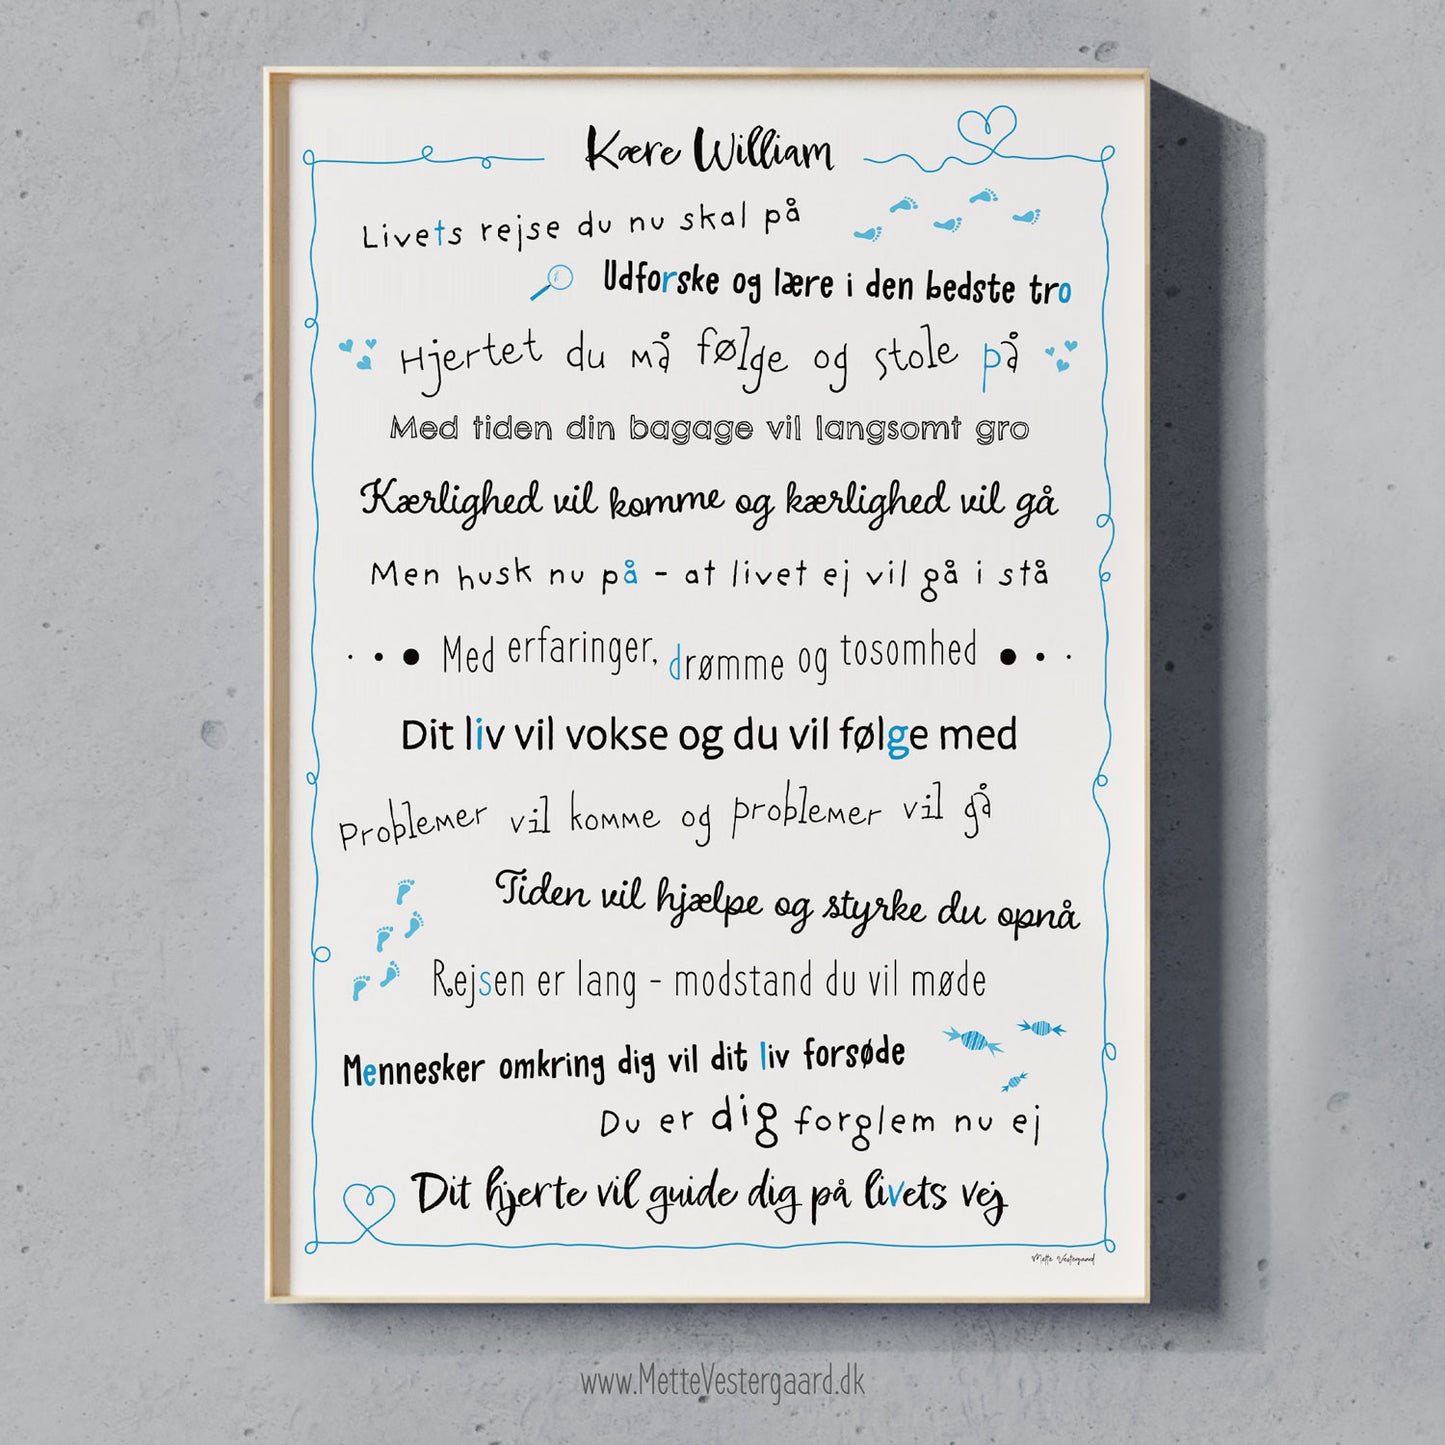 Kære William
Livets rejse du nu skal på
Udforske og lære i den bedste tro
Hjertet du må følge og stole på
Med tiden din bagage vil langsomt gro
Kærlighed vil komme og kærlighed vil gå
Men husk nu på - at livet ej vil gå i stå
Med erfaringer, drømme og tosomhed
Dit liv vil vokse og du vil følge med
Problemer vil komme og problemer vil gå
Tiden vil hjælpe og styrke du opnå
Rejsen er lang - modstand du vil møde
Mennesker omkring dig vil dit liv forsøde
Du er dig forglem nu ej
Dit hjerte vil guide dig på livets vej
Mette Vestergaard
www.MetteVestergaard.dk